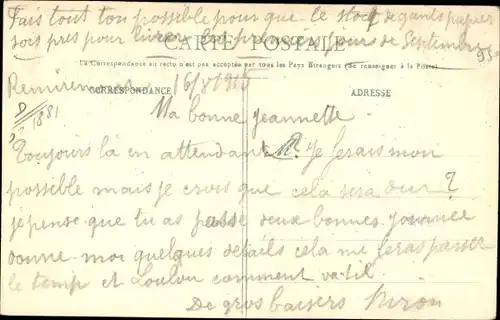 Fais tout ton possible pour que le stock de gants papier
sois pres pour livrer les premiers jours de Septembre
CARTE POSTALE
La Correspondance au recto n'est pas acceptée par tous les Pays Etrangers (Se renseigner à la Poste)
Remiremont 16/8/1915
CORRESPONDANCE ADRESSE
Ma bonne Jeannette
Toujours là en attendant Je ferais mon
possible mais je crois que cela sera dur ?
je pense que tu as passé deux bonnes journée
donne-moi quelques détails cela me feras passer
le temp et Loulou comment va-til
De gros baisers